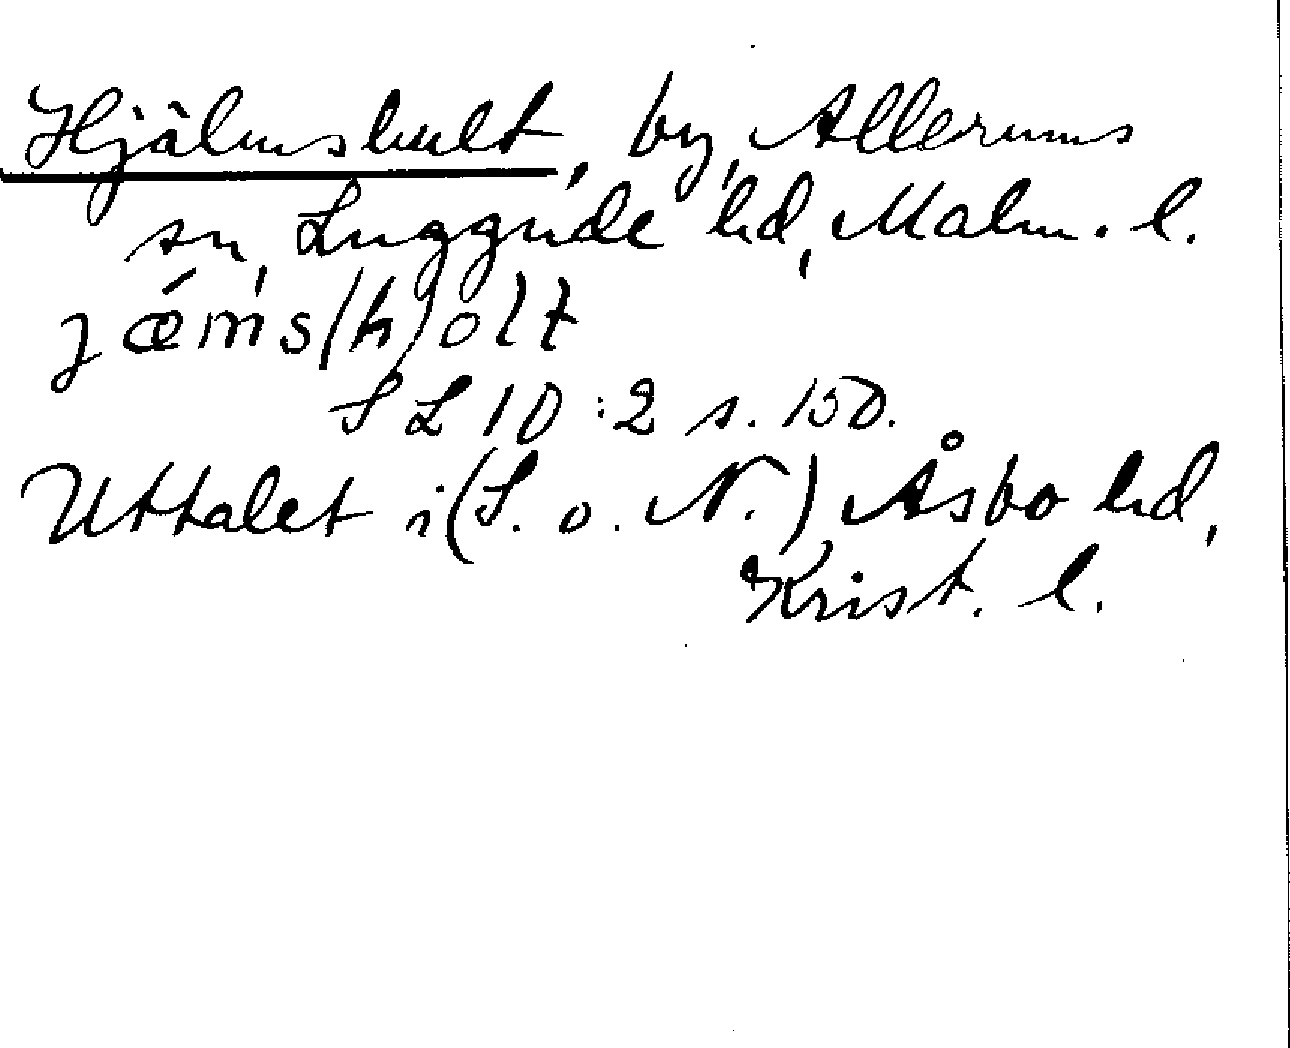 Hjälmshult, by, Allerums
sn, Luggude hd, Malm. l.
jǽm̀s(h)olt
SL 10:2 s. 150.
Uttalet i (S. o. N.) Åsbo hd,
Krist. l.